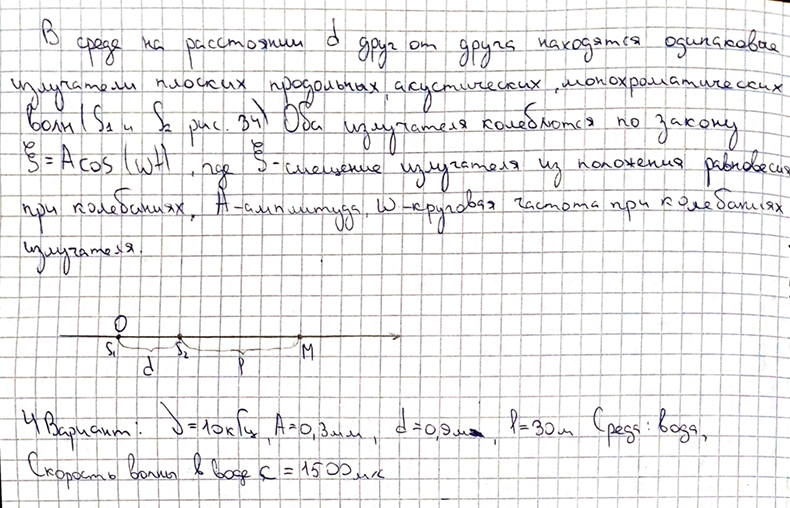 В среде на расстоянии d друг от друга находятся одинаковые
излучатели плоских продольных, акустических, монохроматических
волн (S1 и S2 рис. 34) Оба излучателя колеблются по закону
ξ = A cos (wt), где ξ - смещение излучателя из положения равновесия
при колебаниях, A - амплитуда, w - круговая частота при колебаниях
излучателя.
O
S1 d S2 P M
4 Вариант: ν = 10 кГц, A = 0,3 мм, d = 0,9 м, l = 30 м Среда: вода,
Скорость волны в воде c = 1500 м/с